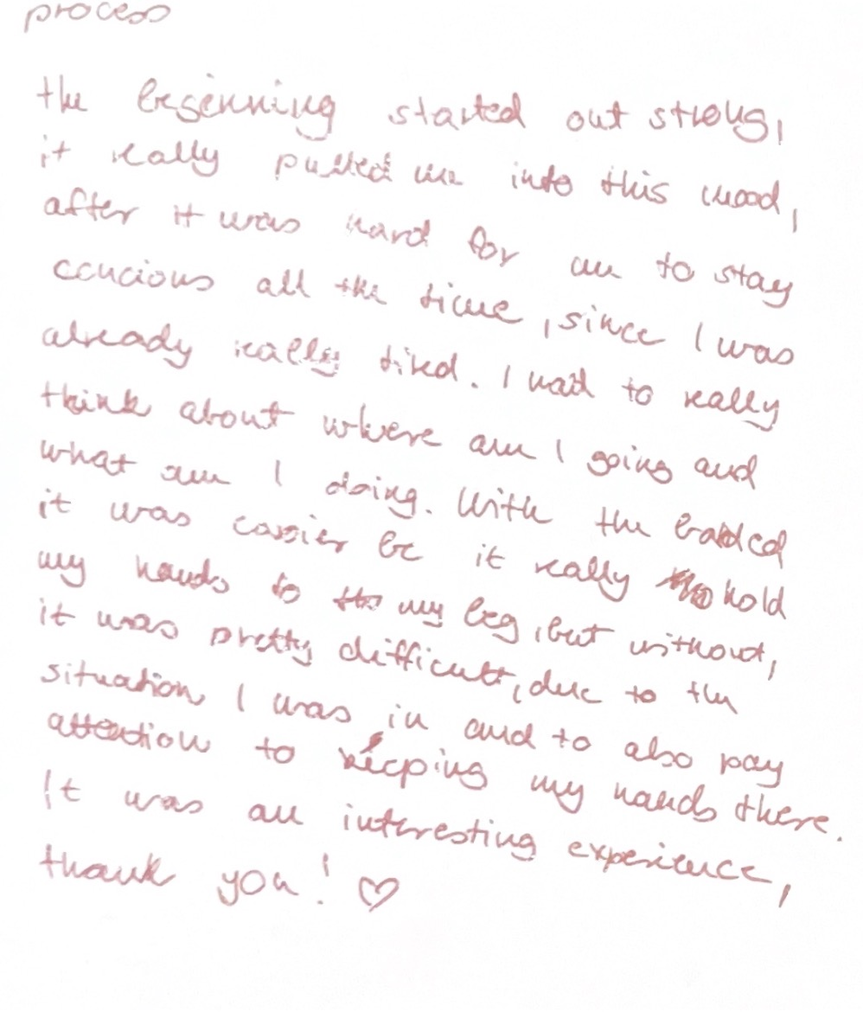 process
the beginning started out strong,
it really pulled me into this mood,
after it was hard for me to stay
concious all the time, since I was
already really tired. I had to really
think about where am I going and
what am I doing. With the
it was easier bc it really hold
my hands to my leg, but without,
it was pretty difficult, due to the
situation I was in and to also pay
attention to keeping my hands there.
It was an interesting experience,
thank you! ♡